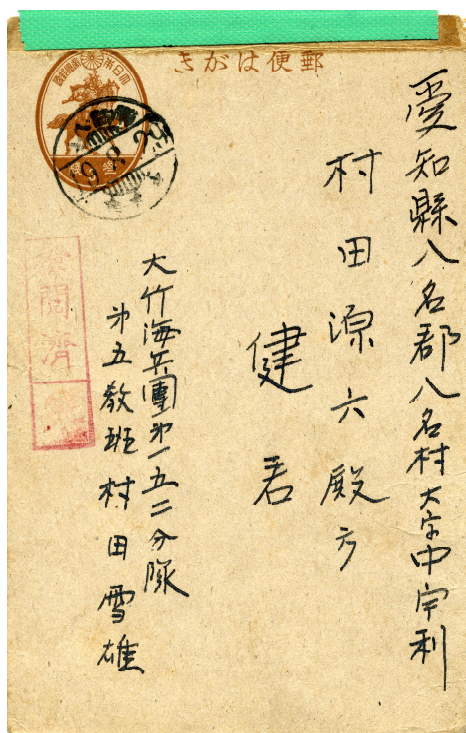 郵便はがき
愛知縣八名郡八名村大字中宇利
村田源六殿方
健君
大竹海兵團第一五二分隊
第五教班 村田雪雄
検閲濟
19.2.29